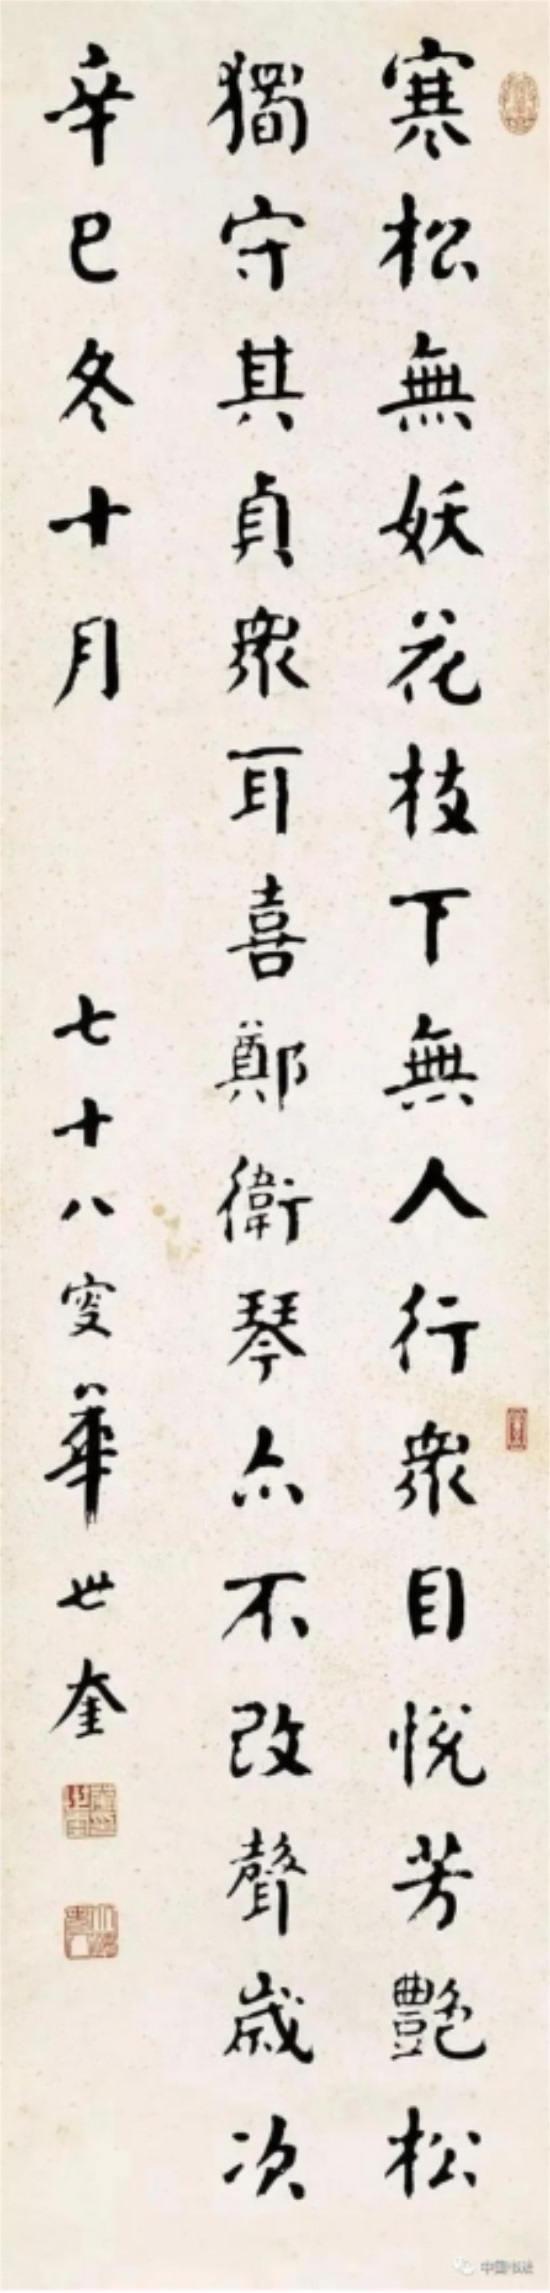 寒松無妖花枝下無人行衆目悅芳艷松
獨守其貞衆耳喜鄭衛琴亦不改聲歲次
辛巳冬十月
七十八叟華世奎
中国书法